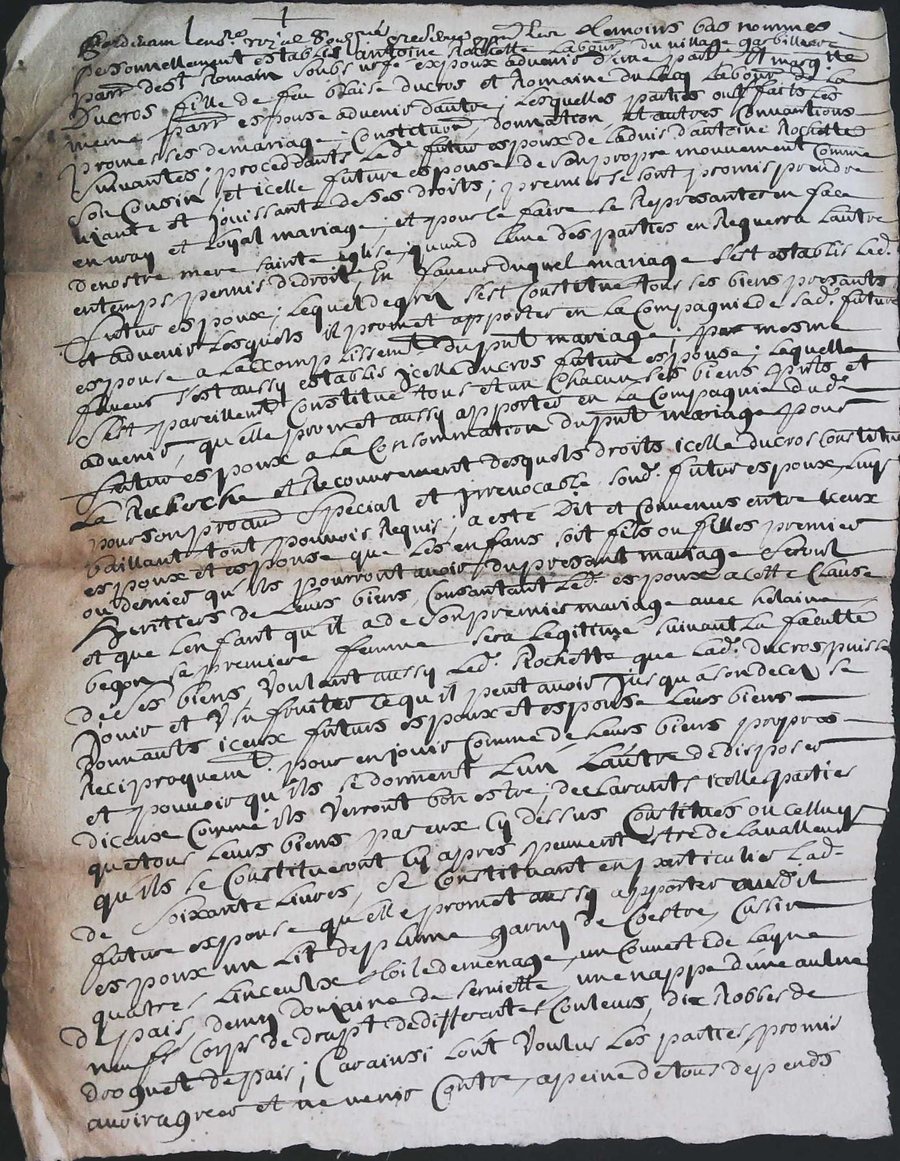 Pardevant le no.re royal soubsigné et presence des temoins bas nommes
personnellement establis antoine Rochette labour. du village
parr. de st Romain soubs urfe expoux advenir d'une part et margite
Ducros fille de feu blaise ducros et Romaine du Lacq labour. de la
meme parr. espouse advenir d'autre; Lesquelles parties ont faits les
promesses de mariage, Constitu.on donnation et autres Conventions
suivantes; proceddants led. futur espoux de l'advis d'antoine Rochette
son Cousin, et icelle future espouse de son propre mouvement comme
usante et jouissante de ses droits; premier se sont promis prendre
en vray et loyal mariage, et pour le faire se Representer en face
de nostre mere sainte eglise, quand l'une des parties en Requerra l'autre
en temps permis de droit, En faveur duquel mariage s'est establis led.
futur espoux; lequel de gré s'est Constitué tous ses biens presants
et advenir lesquels il promet apporter en la Compagnie de sad. future
espouse a l'accomplissem.t du p.nt mariage; par mesme
faveur s'est aussy establis icelle ducros future espouse; laquelle
s'est pareillem.t Constitué tous et un Chacun ses biens p.nts et
advenir, qu'elle promet aussy apporter en la Compagnie dud.
futur espoux a la Consommation du p.nt mariage pour
la Recherche et Recouvrement desquels droits icelle ducros Constitue
pour son pro.r special et irrevocable sond. futur espoux, luy
baillant tout pouvoir Requis; a esté Dit et Convenus entre iceux
espoux et espouse que les enfans soit fils ou filles premier
ou dernier qu'ils pourront avoir du present mariage seront
heritiers de leurs biens, Consantant led. espoux a cette Clause
et que l'enfant qu'il a de son premier mariage avec helaine
begon sa premiere femme sera legitimé suivant la faculté
de ses biens, Voulant aussy led. Rochette que lad. ducros puisse
Jouir et Usufruiter ce qu'il peut avoir jusqu'a son deces, se
Donnants iceux futurs espoux et espouse leurs biens
Reciproquem.t pour en jouir Comme de leurs biens propres
et pouvoir qu'ils se donnent l'un l'autre de disposer
diceux Comme ils verront bon estre; declarants icelle parties
que tous leurs biens par eux Cy dessus Constitués ou celluy
qu'ils se Constitueront Cy apres peuvent estre de la valleur
de soixante livres, se Constituant en particulier lad.
future espouse qu'elle promet aussy apporter audit
espoux un lit de plume garny de Coestre, Cussin
quatre linceulx toile de menage, un Couvert de layne
de pais, demy douzaine de serviette, une nappe d'une aulne
neufs Corps de drapt de differante Couleurs, dix Robbes de
droguet de pais; Car ainsi l'ont Voulus les parties, promis
avoir agreer et ne venir Contre, a peine de tous depends